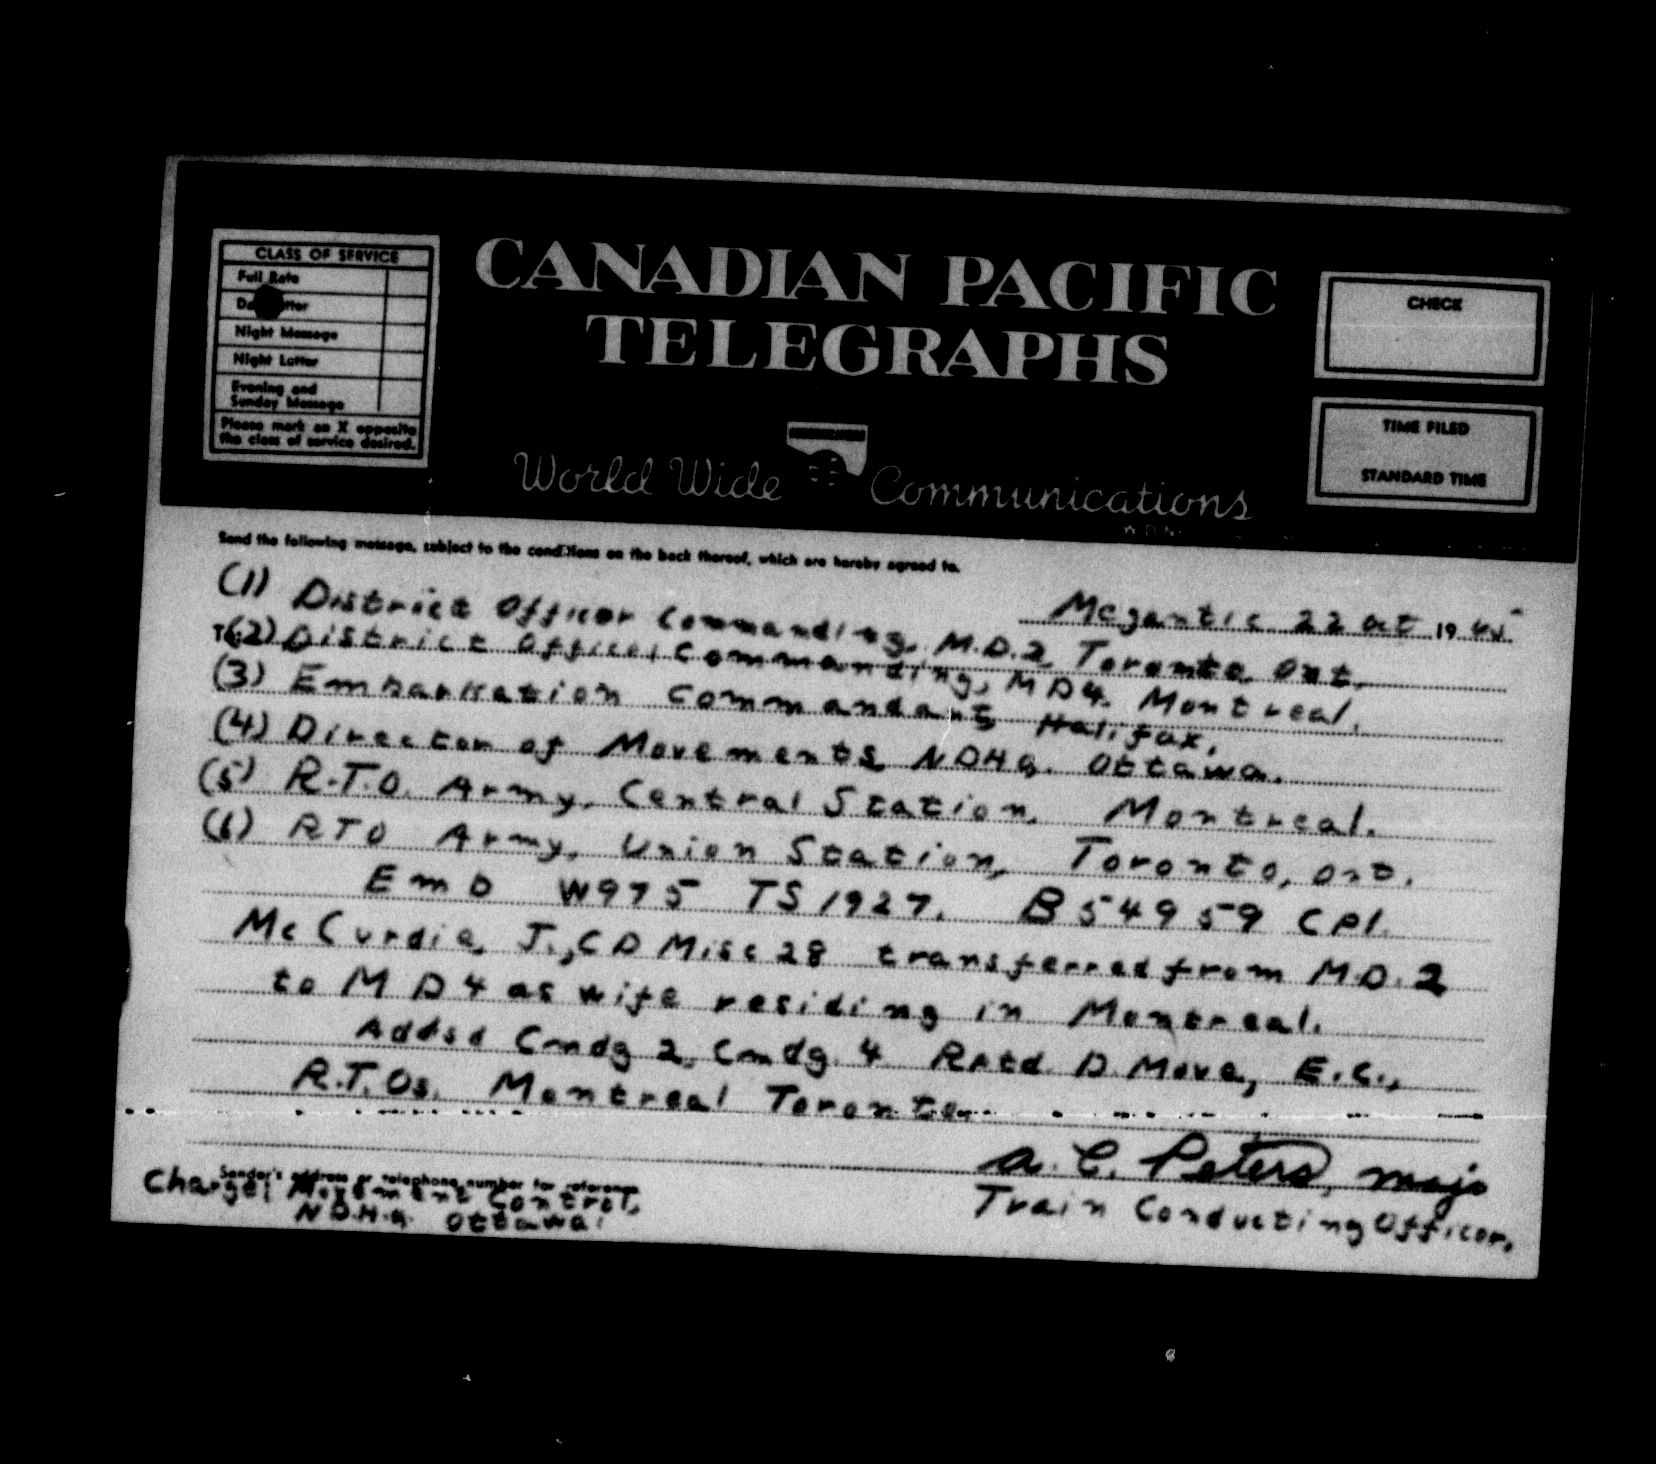 CLASS OF SERVICE
Full Rate
Night Message
Night Letter
Evening and
Sunday Message
Please mark an X opposite
the class of service desired.
CANADIAN PACIFIC
TELEGRAPHS
World Wide Communications
CHECK
TIME FILED
STANDARD TIME
Send the following message, subject to the conditions on the back thereof, which are hereby agreed to.
Megantic 22 Oct 1945
(1) District Officer Commanding, M.D.2, Toronto, Ont.
To: (2) District Officer Commanding, MD4. Montreal.
(3) Embarkation Commandant Halifax.
(4) Director of Movements, NDHQ. Ottawa.
(5) R.T.O. Army, Central Station, Montreal.
(6) RTO Army, Union Station, Toronto, Ont.
Emb W975 TS 1927. B54959 Cpl.
McCurdie, J., CD Misc 28 transferred from M.D.2
to MD4 as wife residing in Montreal.
Addsd Cmdg 2, Cmdg. 4 Rptd D. Move, E.C.,
R.T.Os. Montreal Toronto.
A. C. Peters, Major
Train Conducting Officer.
Sender's address or telephone number for reference
Charge: Movement Control,
N.D.H.Q. Ottawa.